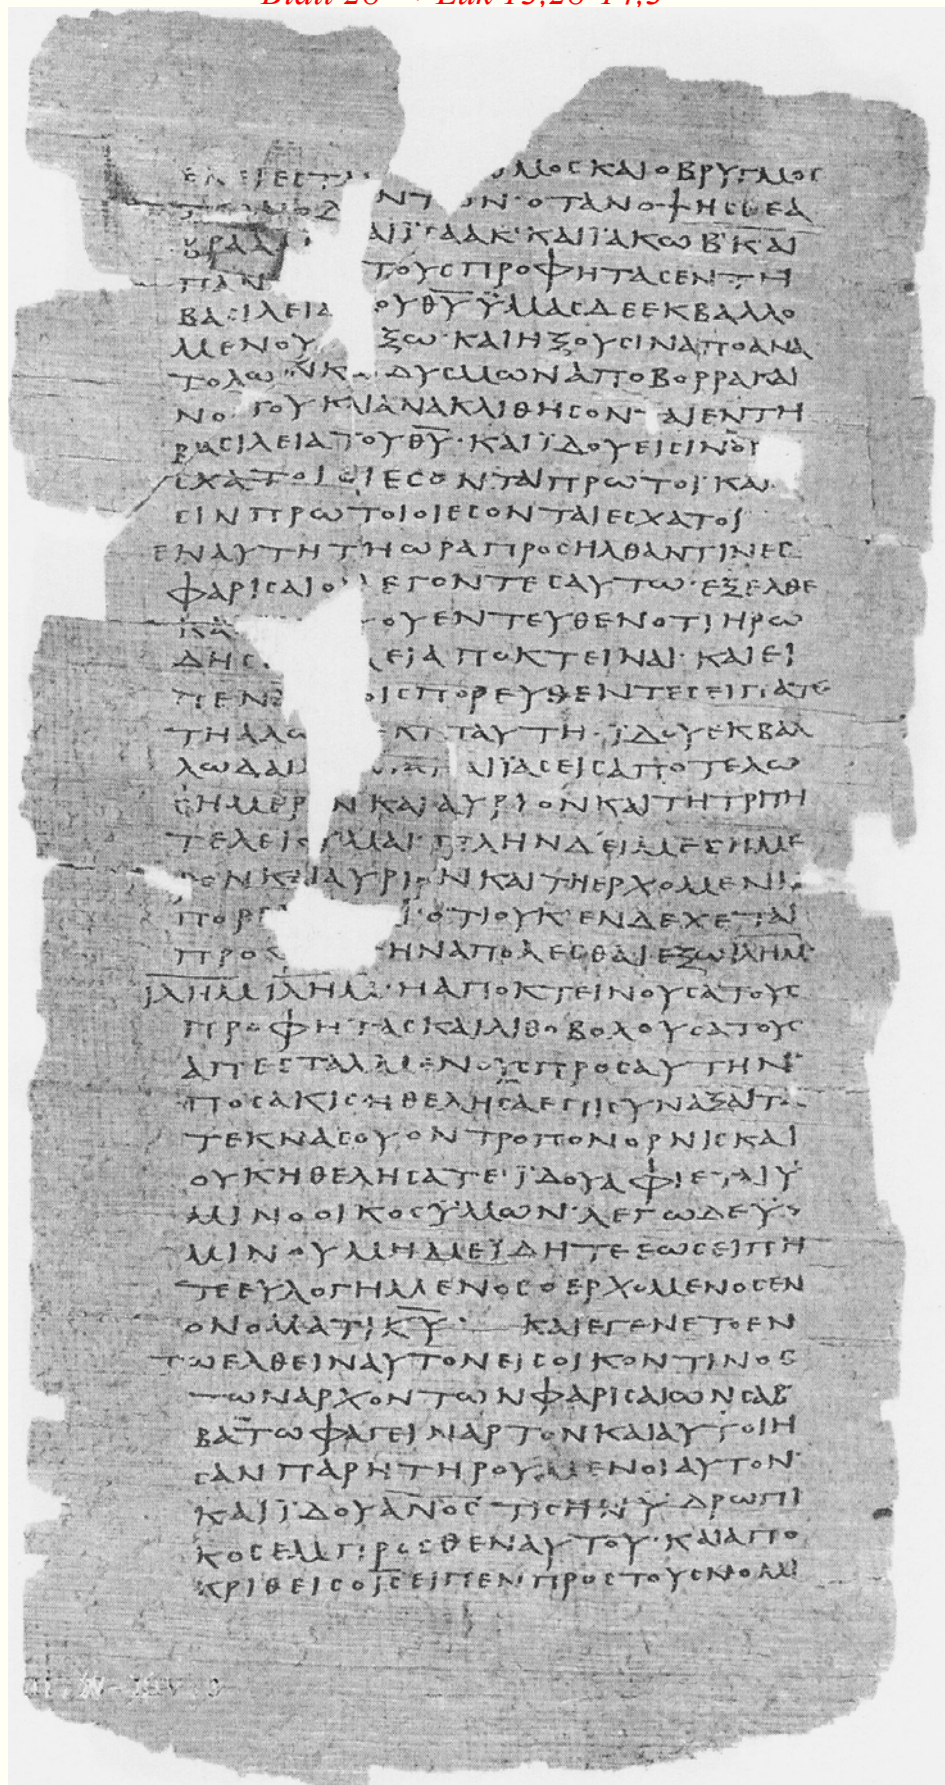 Blatt 28 → Luk 13,28-14,3
ΕΚΕΙ ΕΣΤΑΙ ΜΟΣ ΚΑΙ Ο ΒΡΥΓΜΟΣ
ΝΤΩΝ· ΟΤΑΝ ΟΨΗΣΘΕ Α
ΒΡΑΑΜ ΚΑΙ ΪΣΑΑΚ· ΚΑΙ ΪΑΚΩΒ· ΚΑΙ
ΠΑΝ ΤΟΥΣ ΠΡΟΦΗΤΑΣ ΕΝ ΤΗ
ΒΑΣΙΛΕΙΑ ΟΥ Θ̅Υ̅ ΫΜΑΣ ΔΕ ΕΚΒΑΛΛΟ
ΜΕΝΟΥ ΞΩ· ΚΑΙ ΗΞΟΥΣΙΝ ΑΠΟ ΑΝΑ
ΤΟΛΩΝ Κ ΔΥΣΜΩΝ ΑΠΟ ΒΟΡΡΑ ΚΑΙ
ΝΟΤΟΥ ΚΑΙ ΑΝΑΚΛΙΘΗΣΟΝΤΑΙ ΕΝ ΤΗ
ΒΑΣΙΛΕΙΑ ΤΟΥ Θ̅Υ̅· ΚΑΙ ΪΔΟΥ ΕΙΣΙΝ
ΣΧΑΤΟΙ ΟΙ ΕΣΟΝΤΑΙ ΠΡΩΤΟΙ ΚΑΙ
ΣΙΝ ΠΡΩΤΟΙ ΟΙ ΕΣΟΝΤΑΙ ΕΣΧΑΤΟΙ
ΕΝ ΑΥΤΗ ΤΗ ΩΡΑ ΠΡΟΣΗΛΘΑΝ ΤΙΝΕΣ
ΦΑΡΙΣΑΙΟΙ ΛΕΓΟΝΤΕΣ ΑΥΤΩ· ΕΞΕΛΘΕ
ΚΑ ΟΥ ΕΝΤΕΥΘΕΝ ΟΤΙ ΗΡΩ
ΔΗΣ ΛΕΙ ΑΠΟΚΤΕΙΝΑΙ· ΚΑΙ ΕΙ
ΠΕΝ ΟΙΣ ΠΟΡΕΥΘΕΝΤΕΣ ΕΙΠΑΤΕ
ΤΗ ΑΛΩ ΕΚΙ ΤΑΥΤΗ· ΪΔΟΥ ΕΚΒΑΛ
ΛΩ ΔΑΙ ΑΙ ΪΑΣΕΙΣ ΑΠΟΤΕΛΩ
ΣΗΜΕΡΟΝ ΚΑΙ ΑΥΡΙΟΝ ΚΑΙ ΤΗ ΤΡΙΤΗ
ΤΕΛΕΙΟΥΜΑΙ· ΠΛΗΝ ΔΕΙ ΜΕ ΣΗΜΕ
ΡΟΝ ΚΑΙ ΑΥΡΙΟΝ ΚΑΙ ΤΗ ΕΡΧΟΜΕΝΗ
ΠΟΡΕ Ι· ΟΤΙ ΟΥΚ ΕΝΔΕΧΕΤΑΙ
ΠΡΟΦ ΗΝ ΑΠΟΛΕΣΘΑΙ ΕΞΩ Ι̅Λ̅Η̅Μ̅·
Ι̅Λ̅Η̅Μ̅ Ι̅Λ̅Η̅Μ̅· Η ΑΠΟΚΤΕΙΝΟΥΣΑ ΤΟΥΣ
ΠΡΟΦΗΤΑΣ ΚΑΙ ΛΙΘΟΒΟΛΟΥΣΑ ΤΟΥΣ
ΑΠΕΣΤΑΛΜΕΝΟΥΣ ΠΡΟΣ ΑΥΤΗΝ
ΠΟΣΑΚΙΣ ΗΘΕΛΗΣΑ ΕΠΙΣΥΝΑΞΑΙ ΤΑ
ΤΕΚΝΑ ΣΟΥ ΟΝ ΤΡΟΠΟΝ ΟΡΝΙΣ ΚΑΙ
ΟΥΚ ΗΘΕΛΗΣΑΤΕ· ΪΔΟΥ ΑΦΙΕΤΑΙ Ϋ
ΜΙΝ Ο ΟΙΚΟΣ ΫΜΩΝ· ΛΕΓΩ ΔΕ Ϋ
ΜΙΝ· ΟΥ ΜΗ ΜΕ ΪΔΗΤΕ ΕΩΣ ΕΙΠΗ
ΤΕ ΕΥΛΟΓΗΜΕΝΟΣ Ο ΕΡΧΟΜΕΝΟΣ ΕΝ
ΟΝΟΜΑΤΙ Κ̅Υ̅· ΚΑΙ ΕΓΕΝΕΤΟ ΕΝ
ΤΩ ΕΛΘΕΙΝ ΑΥΤΟΝ ΕΙΣ ΟΙΚΟΝ ΤΙΝΟΣ
ΤΩΝ ΑΡΧΟΝΤΩΝ ΦΑΡΙΣΑΙΩΝ ΣΑΒ
ΒΑΤΩ ΦΑΓΕΙΝ ΑΡΤΟΝ ΚΑΙ ΑΥΤΟΙ Η
ΣΑΝ ΠΑΡΗΤΗΡΟΥΜΕΝΟΙ ΑΥΤΟΝ·
ΚΑΙ ΪΔΟΥ Α̅Ν̅Ο̅Σ̅ ΤΙΣ ΗΝ ΫΔΡΩΠΙ
ΚΟΣ ΕΜΠΡΟΣΘΕΝ ΑΥΤΟΥ· ΚΑΙ ΑΠΟ
ΚΡΙΘΕΙΣ Ο Ι̅Σ̅ ΕΙΠΕΝ ΠΡΟΣ ΤΟΥΣ ΝΟΜΙ